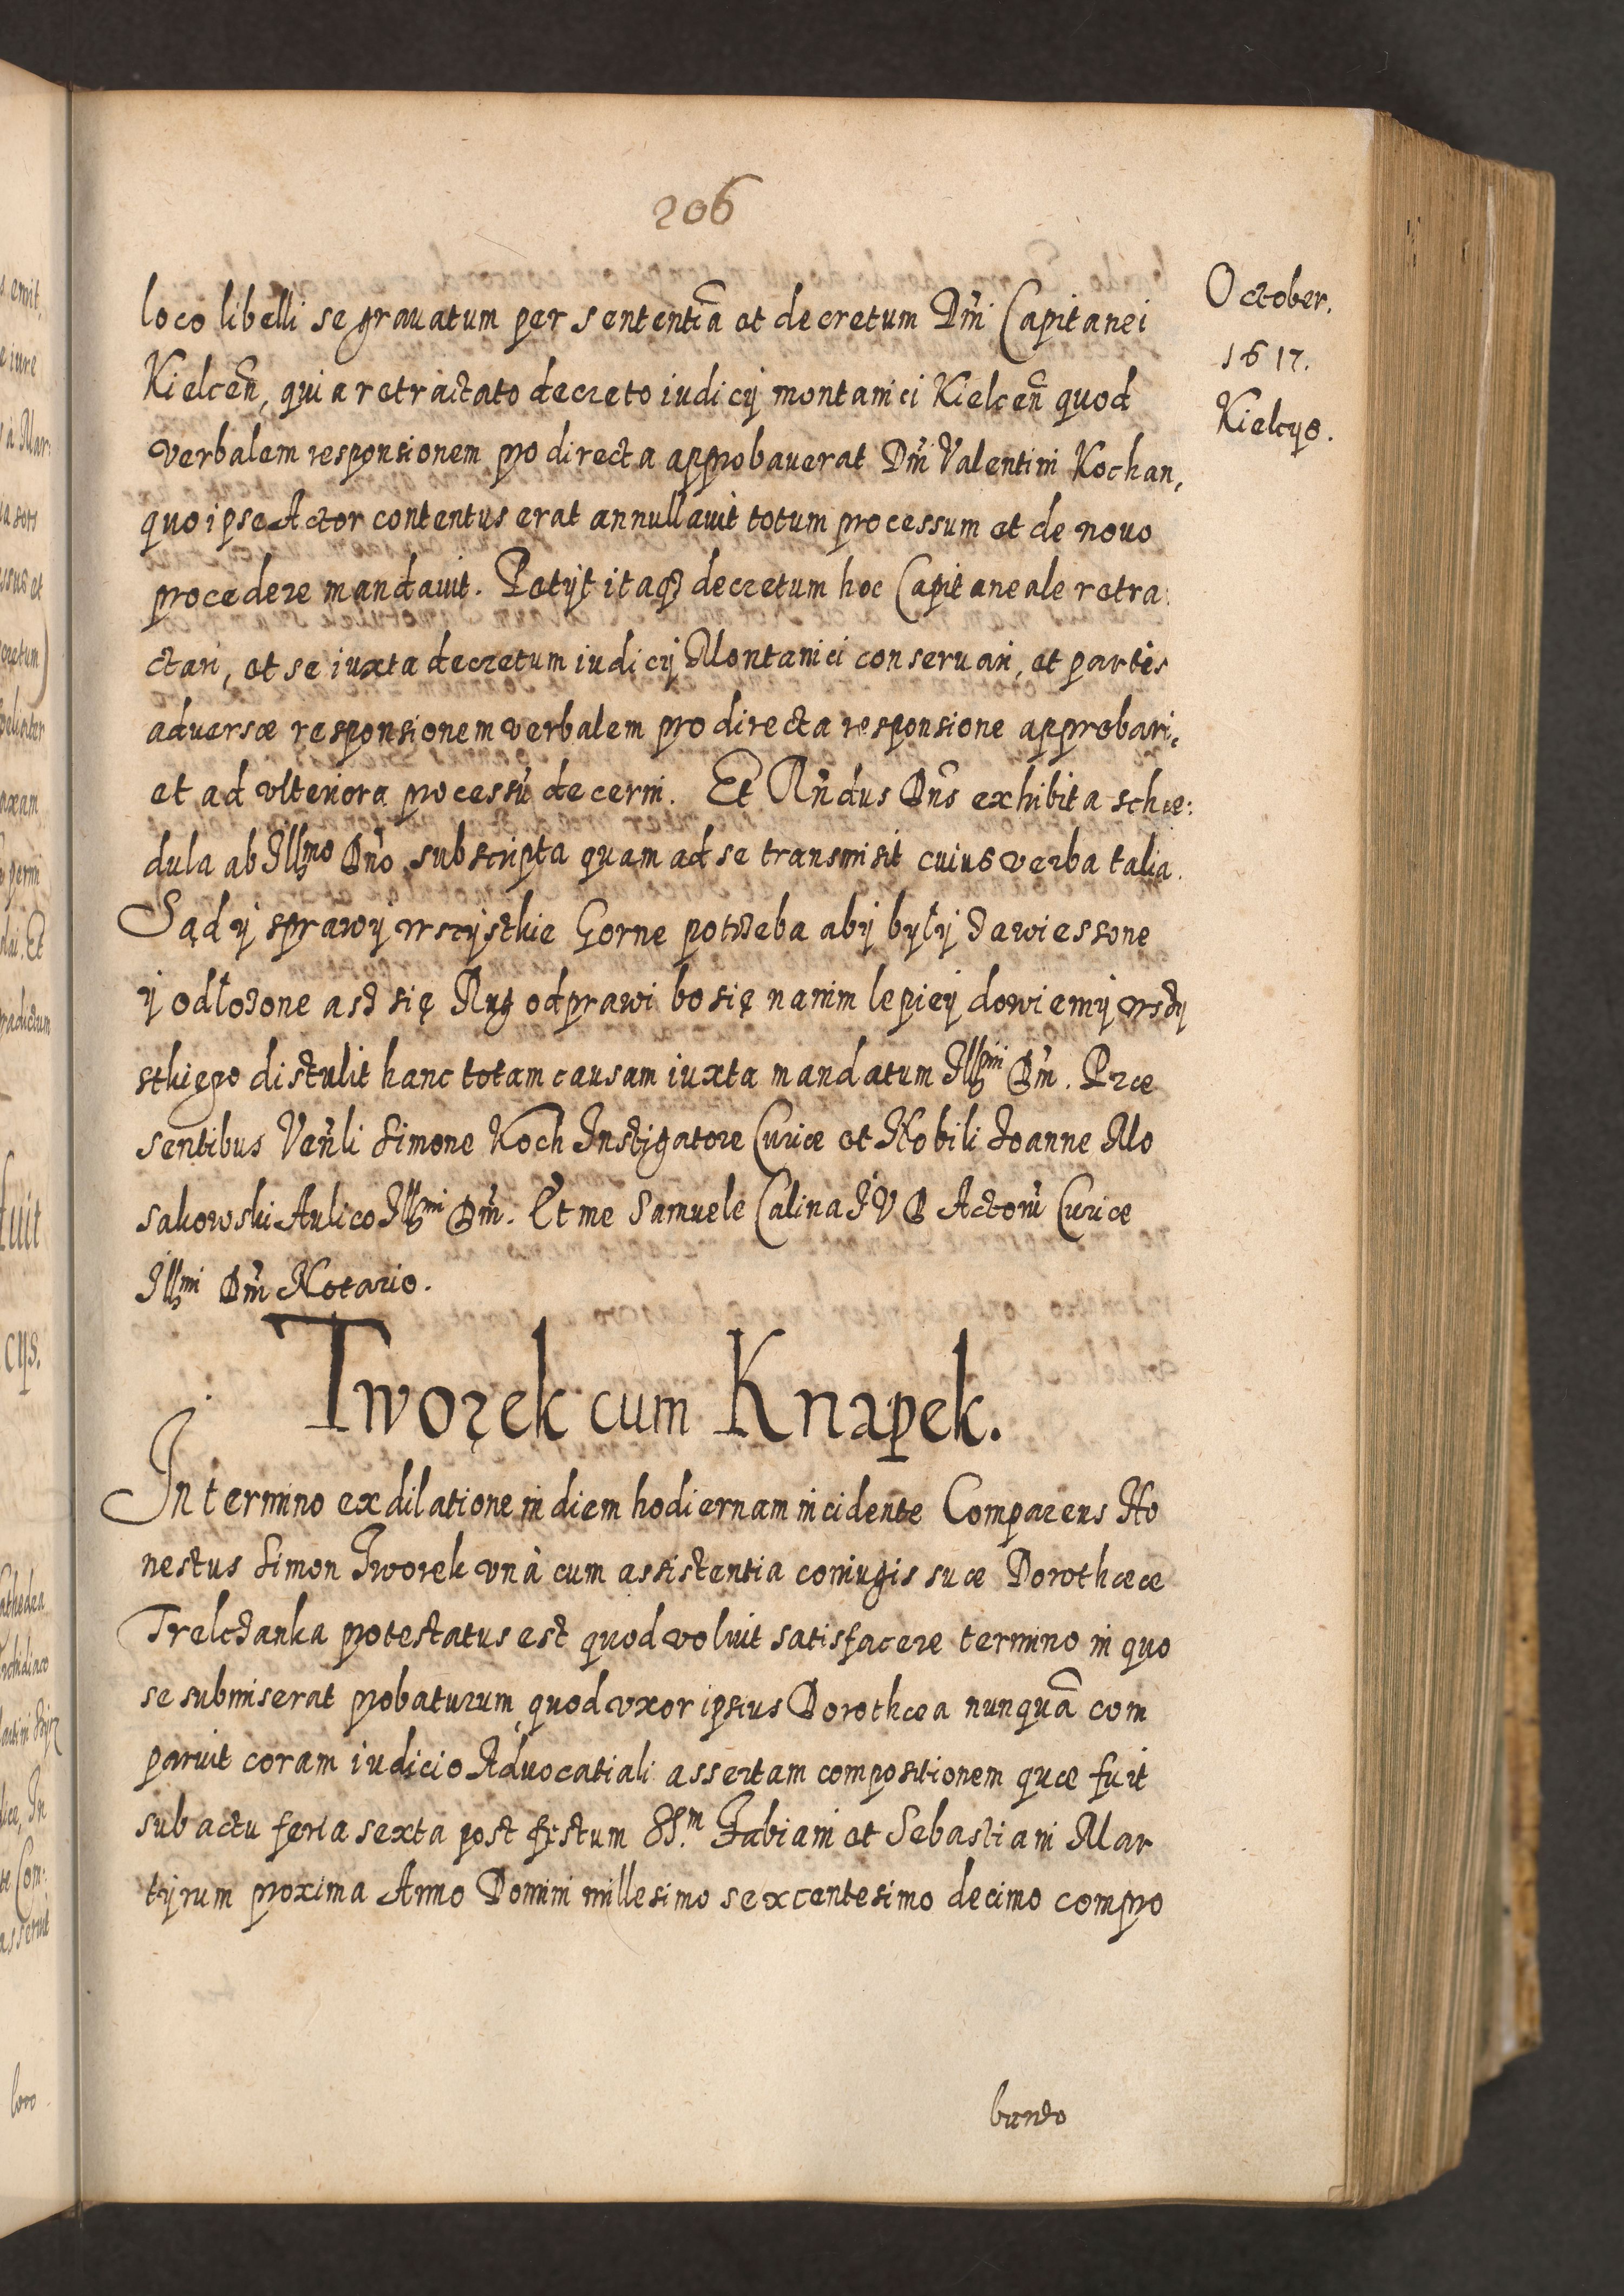 206
October.
1617.
Kielcys.
loco libelli se grauatum per sententiã et decretum Dñi Capitanei
Kielceñ, quia retractato decreto iudicij montanici Kielceñ quod
verbalem responsionem pro directa approbauerat Dñi Valentini Kochan,
quo ipse Actor contentus erat annullauit totum processum et de nouo
procedere mandauit. Petijt itaq3 decretum hoc Capitaneale retra:
ctari, et se iuxta decretum iudicij Montanici conseruari, et partis
aduersæ responsionem verbalem pro directa responsione approbari,
et ad vlteriora processũ decerni. Et Rñdus Dñs exhibita sche:
dula ab Illmo Dño subscripta quam ad se transmisit cuius verba talia.
Sądÿ sprawÿ wszÿstkie Gorne potrzeba abÿ bÿłÿ zawiessone
ÿ odłożone asz się Rug odprawi bo się na nim lepieÿ dowiemÿ wszÿ
stkiego distulit hanc totam causam iuxta mandatum Illmi Dñi. Præ
sentibus Veñli Simone Koch Instigatore Curiæ et Nobili Joanne Mo
sakowski Aulico Illmi Dñi. Et me Samuele Calina I V D Actorũ Curiæ
Illmi Dñi Notario.
Tworek cum Knapek.
In termino ex dilatione in diem hodiernam incidente Comparens Ho
nestus Simon Tworek vnà cum assistentia coniugis suæ Dorotheæ
Trelczanka protestatus est quod voluit satisfacere termino in quo
se submiserat probaturum, quod vxor ipsius Dorothea nunquã com
paruit coram iudicio Aduocatiali assertam compositionem quæ fuit
sub actu feria sexta post festum SS.m Fabiani et Sebastiani Mar
tÿrum proxima Anno Domini millesimo sexcentesimo decimo compro
bando